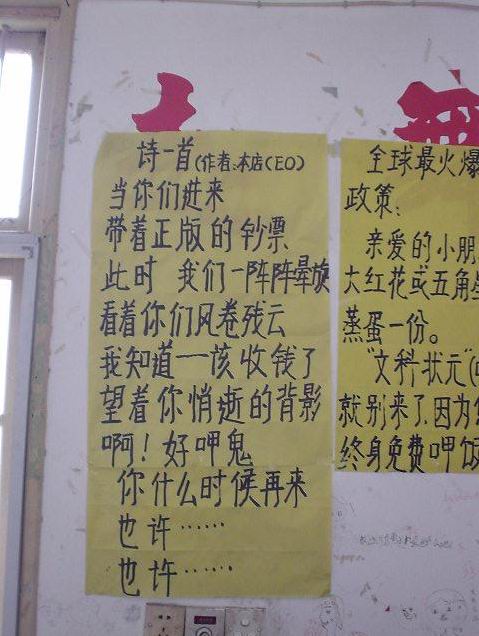 诗一首(作者:本店CEO)
当你们进来
带着正版的钞票
此时 我们一阵阵晕旋
看着你们风卷残云
我知道一该收钱了
望着你悄逝的背影
啊!好呷鬼
你什么时候再来
也许……
也许……
全球最火爆
政策:
亲爱的小朋
大红花或五角星
蒸蛋一份。
“文科状元”(
就别来了.因为
终身免费呷饭